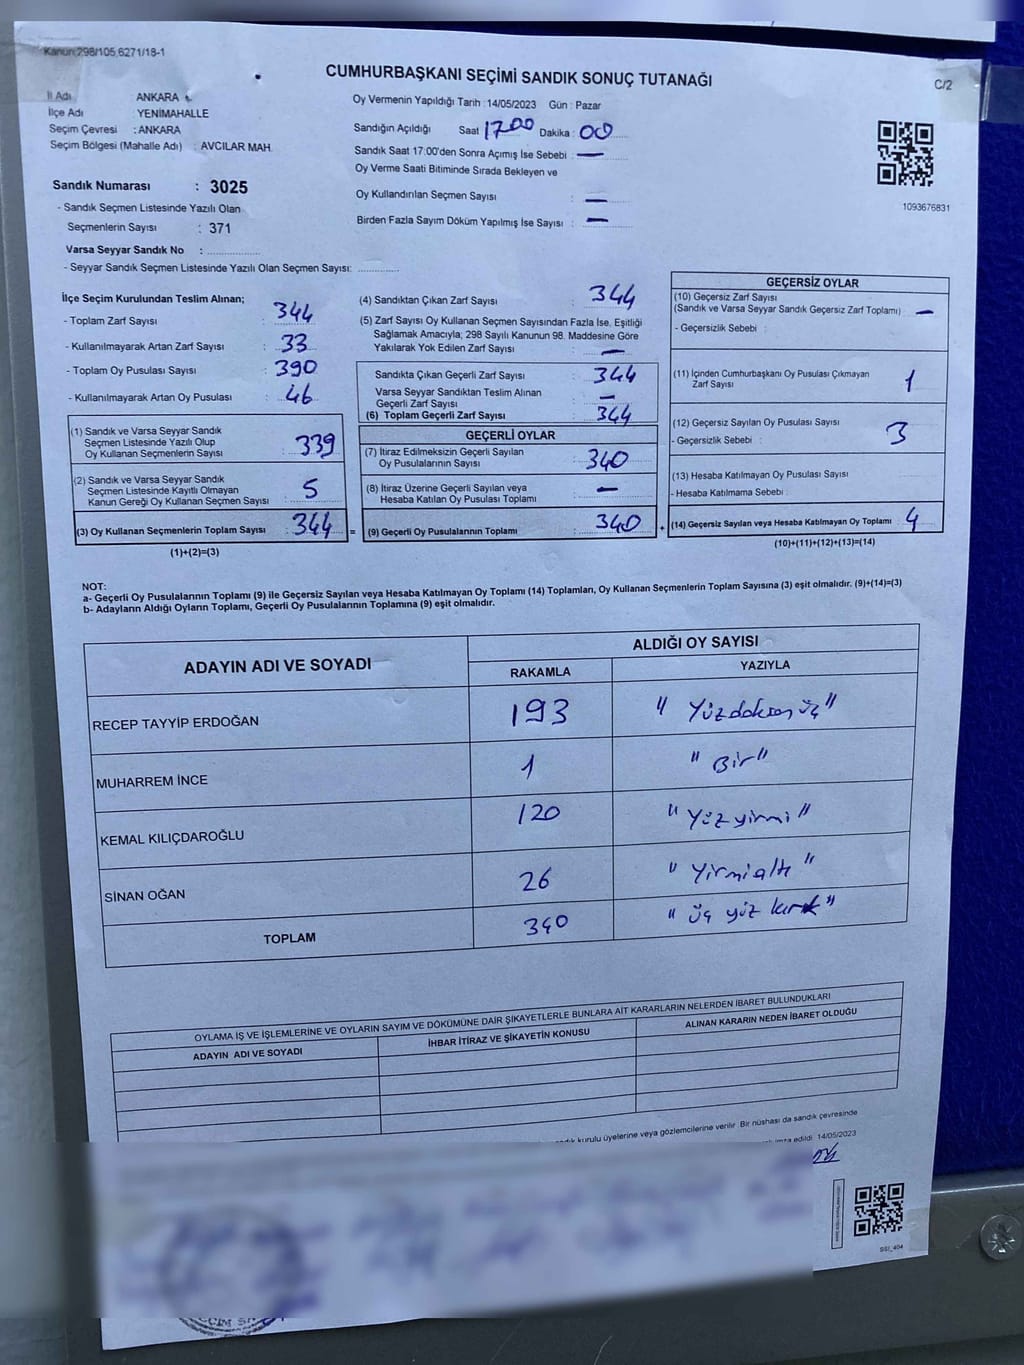 Kanun:298/105,6271/18-1
CUMHURBAŞKANI SEÇİMİ SANDIK SONUÇ TUTANAĞI
C/2
İl Adı ANKARA
İlçe Adı : YENİMAHALLE
Seçim Çevresi : ANKARA
Seçim Bölgesi (Mahalle Adı) : AVCILAR MAH.
Sandık Numarası : 3025
- Sandık Seçmen Listesinde Yazılı Olan
Seçmenlerin Sayısı : 371
Varsa Seyyar Sandık No : ..............
- Seyyar Sandık Seçmen Listesinde Yazılı Olan Seçmen Sayısı: ............
Oy Vermenin Yapıldığı Tarih : 14/05/2023 Gün : Pazar
Sandığın Açıldığı Saat 17.00 Dakika : 00
Sandık Saat 17:00'den Sonra Açımış İse Sebebi : —
Oy Verme Saati Bitiminde Sırada Bekleyen ve
Oy Kullandırılan Seçmen Sayısı : —
Birden Fazla Sayım Döküm Yapılmış İse Sayısı : —
1093676831
İlçe Seçim Kurulundan Teslim Alınan;
- Toplam Zarf Sayısı : 344
- Kullanılmayarak Artan Zarf Sayısı : 33
- Toplam Oy Pusulası Sayısı : 390
- Kullanılmayarak Artan Oy Pusulası : 46
(1) Sandık ve Varsa Seyyar Sandık
Seçmen Listesinde Yazılı Olup
Oy Kullanan Seçmenlerin Sayısı : 339
(2) Sandık ve Varsa Seyyar Sandık
Seçmen Listesinde Kayıtlı Olmayan
Kanun Gereği Oy Kullanan Seçmen Sayısı : 5
(3) Oy Kullanan Seçmenlerin Toplam Sayısı : 344 =
(1)+(2)=(3)
(4) Sandıktan Çıkan Zarf Sayısı : 344
(5) Zarf Sayısı Oy Kullanan Seçmen Sayısından Fazla İse, Eşitliği
Sağlamak Amacıyla; 298 Sayılı Kanunun 98. Maddesine Göre
Yakılarak Yok Edilen Zarf Sayısı : —
Sandıkta Çıkan Geçerli Zarf Sayısı : 344
Varsa Seyyar Sandıktan Teslim Alınan
Geçerli Zarf Sayısı : —
(6) Toplam Geçerli Zarf Sayısı : 344
GEÇERLİ OYLAR
(7) İtiraz Edilmeksizin Geçerli Sayılan
Oy Pusulalarının Sayısı : 340
(8) İtiraz Üzerine Geçerli Sayılan veya
Hesaba Katılan Oy Pusulası Toplamı : —
(9) Geçerli Oy Pusulalarının Toplamı : 340 +
GEÇERSİZ OYLAR
(10) Geçersiz Zarf Sayısı
(Sandık ve Varsa Seyyar Sandık Geçersiz Zarf Toplamı) : —
- Geçersizlik Sebebi :
(11) İçinden Cumhurbaşkanı Oy Pusulası Çıkmayan
Zarf Sayısı 1
(12) Geçersiz Sayılan Oy Pusulası Sayısı 3
- Geçersizlik Sebebi :
(13) Hesaba Katılmayan Oy Pusulası Sayısı
- Hesaba Katılmama Sebebi :
(14) Geçersiz Sayılan veya Hesaba Katılmayan Oy Toplamı : 4
(10)+(11)+(12)+(13)=(14)
NOT:
a- Geçerli Oy Pusulasının Toplamı (9) ile Geçersiz Sayılan veya Hesaba Katılmayan Oy Toplamı (14) Toplamları, Oy Kullanan Seçmenlerin Toplam Sayısına (3) eşit olmalıdır. (9)+(14)=(3)
b- Adayların Aldığı Oyların Toplamı, Geçerli Oy Pusulalarının Toplamına (9) eşit olmalıdır.
ADAYIN ADI VE SOYADI ALDIĞI OY SAYISI
RAKAMLA YAZIYLA
RECEP TAYYİP ERDOĞAN 193 "Yüzdoksanüç"
MUHARREM İNCE 1 "Bir"
KEMAL KILIÇDAROĞLU 120 "Yüzyirmi"
SİNAN OĞAN 26 "Yirmialtı"
TOPLAM 340 "üç yüz kırk"
OYLAMA İŞ VE İŞLEMLERİNE VE OYLARIN SAYIM VE DÖKÜMÜNE DAİR ŞİKAYETLERLE BUNLARA AİT KARARLARIN NELERDEN İBARET BULUNDUKLARI
ADAYIN ADI VE SOYADI İHBAR İTİRAZ VE ŞİKAYETİN KONUSU ALINAN KARARIN NEDEN İBARET OLDUĞU
kurulu üyelerine veya gözlemcilerine verilir. Bir nüshası da sandık çevresinde
imza edildi. 14/05/2023
SSI_404